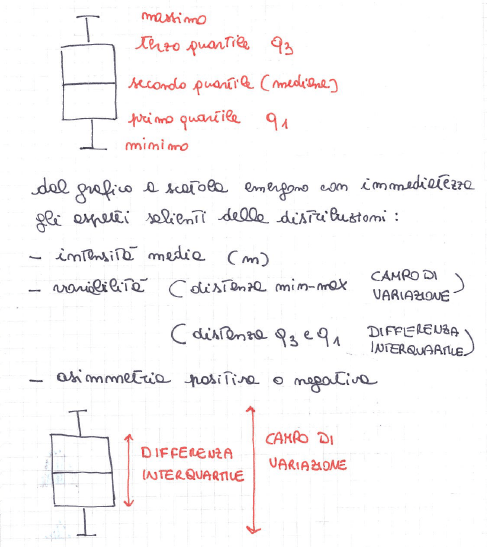 massimo
terzo quartile q3
secondo quartile (mediana)
primo quartile q1
minimo
dal grafico a scatola emergono con immediatezza
gli aspetti salienti delle distribuzioni:
- intensità media (m)
- variabilità (distanza min-max CAMPO DI VARIAZIONE)
(distanza q3 e q1 DIFFERENZA INTERQUARTILE)
- asimmetria positiva o negativa
DIFFERENZA
INTERQUARTILE
CAMPO DI
VARIAZIONE